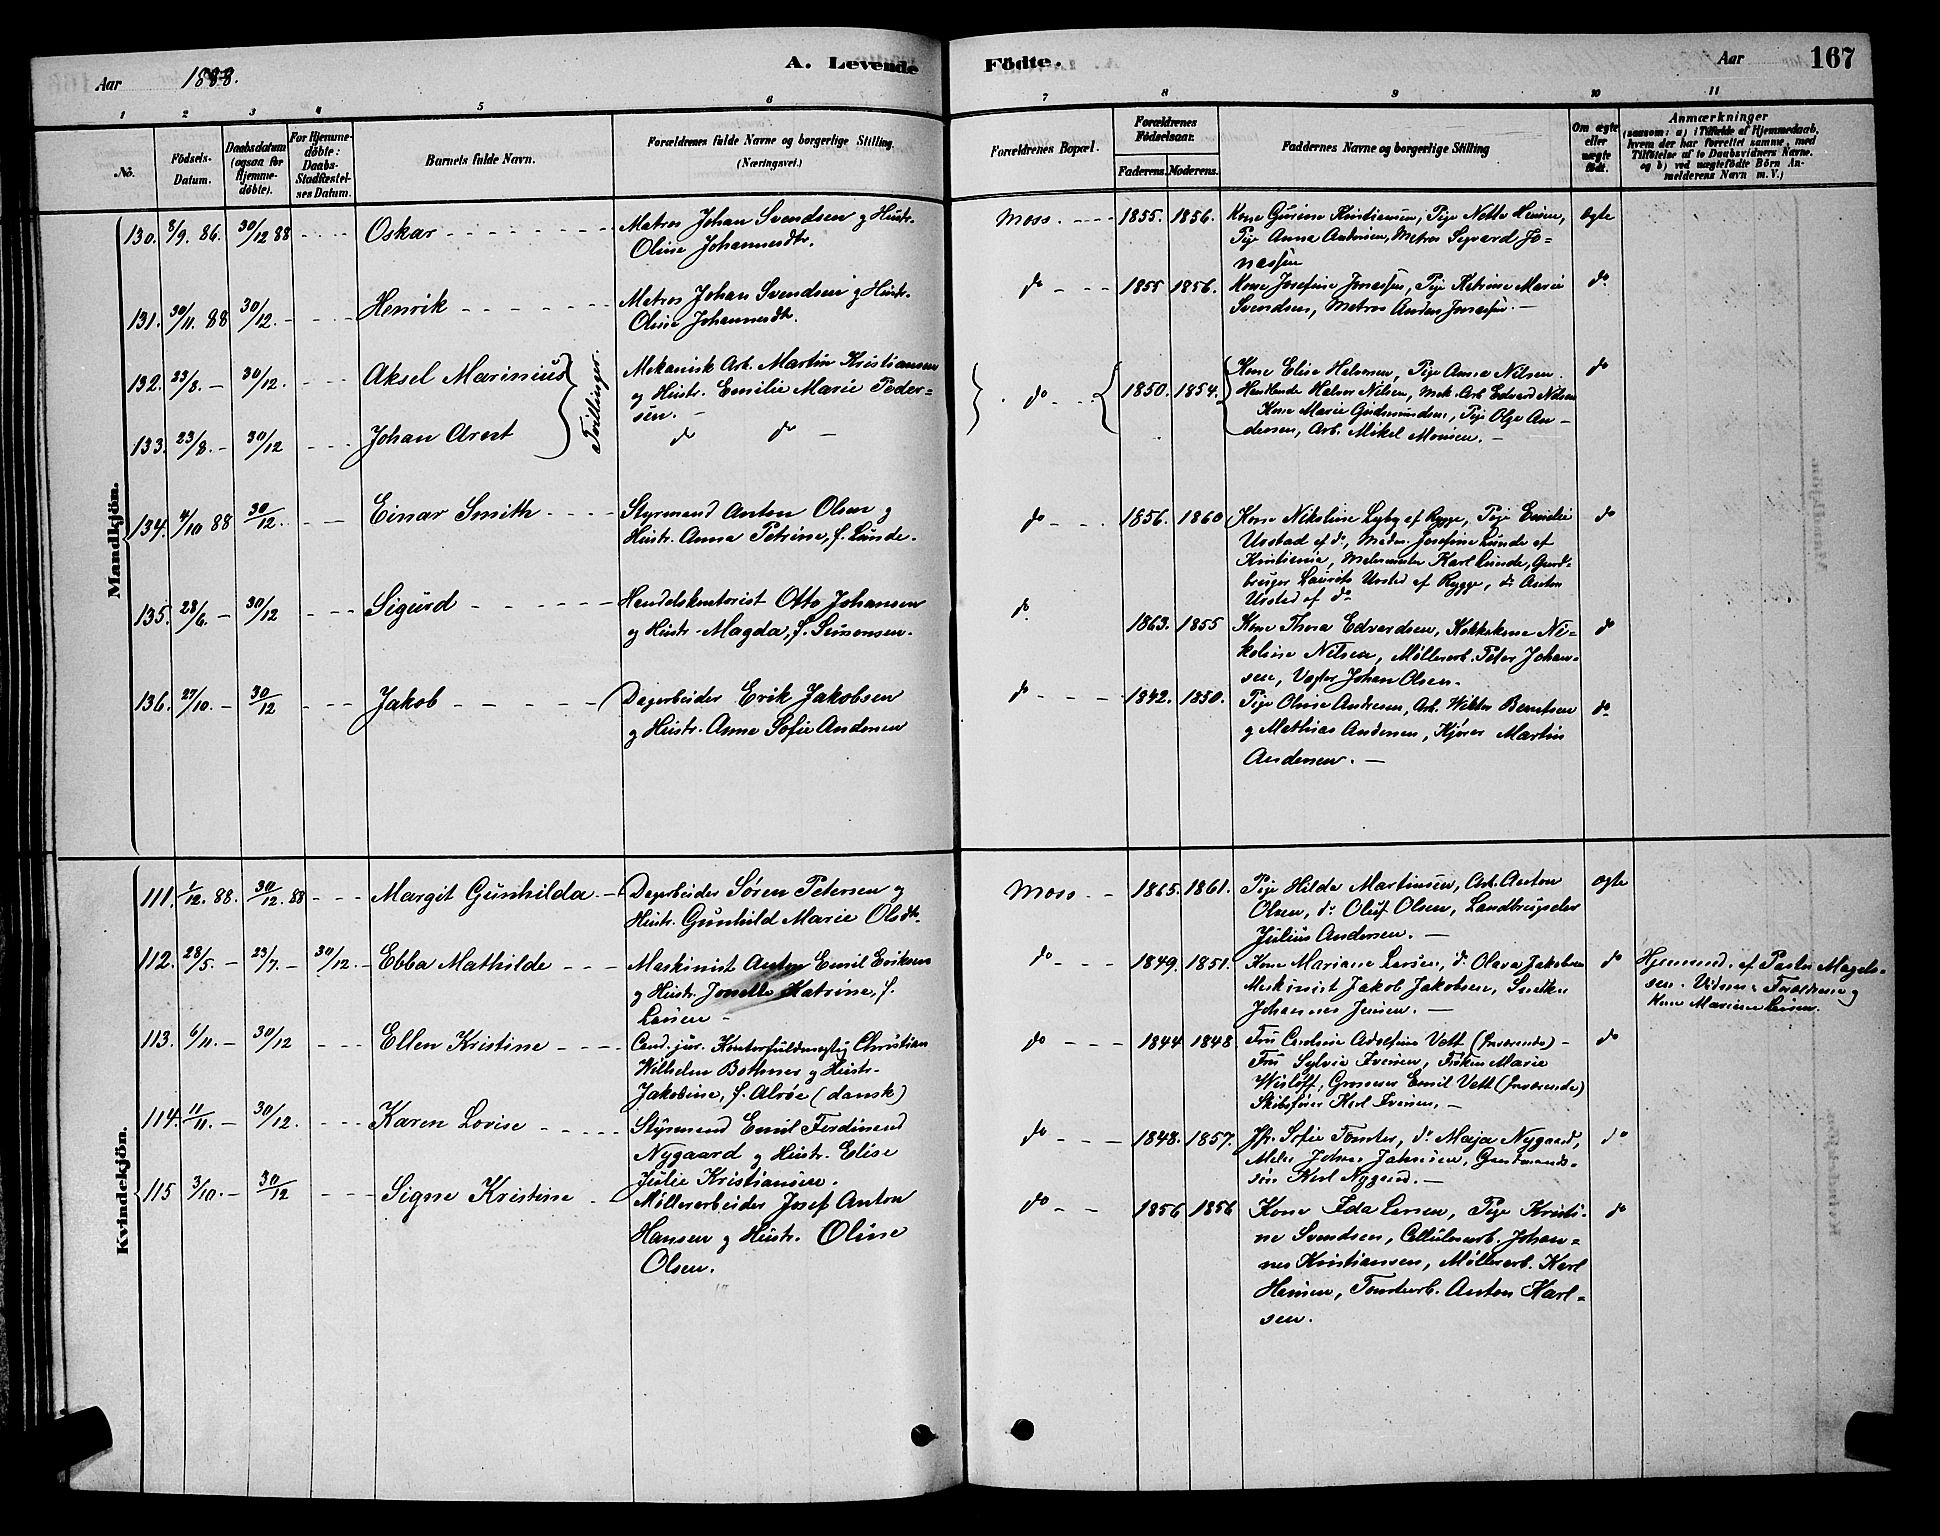 Aar 1888. A. Levende Fødte. Aar 167
1 2 3 4 5 6 7 8 9 10 11
No.
Fødsels-Datum.
Daabsdatum (ogsaa for Hjemme-døbte).
For Hjemme-døbte: Daabs-Stadfæstel-ses Datum.
Barnets fulde Navn.
Forældrenes fulde Navne og borgerlige Stilling. (Næringsvei.)
Forældrenes Bopæl.
Forældrenes Fødselsaar.
Faderens. Moderens.
Faddernes Navne og borgerlige Stilling
Om ægte eller uægte født.
Anmærkninger
(saasom: a) i Tilfælde af Hjemmedaab,
hvem der har forrettet samme, med
Tilføielse af to Daabsvidners Navne.
og b) ved uægtefødte Børn An-
melderens Navn m. V.)
Mandkjön.
130. 8/9. 86. 30/12 88 Oskar
Matros Johan Svendsen og Hustr.
Oline Johannesdtr.
Moss. 1855. 1856.
Kone Gurine Kristiansen, Pige Netta Hansen,
Pige Anna Andersen, Matros Sigvard Jo-
nassen
ægte
131. 30/11. 88 30/12. Henrik
Matros Johan Svendsen og Hustr.
Oline Johannesdtr.
do 1855 1856.
Kone Josefine Jonassen, Pige Katrine Marie
Svendsen, Matros Anders Jonassen. —
do
132. 23/8. — 30/12. Aksel Marinius
Tvillinger.
Mekanisk Arb. Martin Kristiansen
og Hustr. Emilie Marie Peder-
sen. —
do 1850. 1854.
Kone Elise Halvorsen, Pige Anna Nilsen.
Handlende Halvor Nilsen, Mek. Arb. Edvard Nilsen
do
133. 23/8. — 30/12 Johan Arent
do do —
Kone Marie Gudmundsen, Pige Olga An-
dersen, Arb. Mikel Monsen. —
134. 4/10 88 30/12. Einar Smith
Styrmand Anton Olsen og
Hustr. Anna Petrine, f. Lunde.
do 1856. 1860
Kone Nikoline Lyby af Rygge, Pige Emilie
Urstad af do, Madm. Josefine Lunde af
Kristiania, Malermester Karl Lunde, Gaard-
bruger Laurits Urstad af Rygge, do Anton
Urstad af do
do
135. 28/6. — 30/12 Sigurd
Handelskontorist Otto Johansen
og Hustr. Magda, f. Simonsen.
do 1863. 1855
Kone Thora Edvardsen, Kokkekone Ni-
koline Nilsen, Møllerarb. Peter Johan-
sen, Vagter Johan Olsen.
do
136. 27/10. — 30/12 Jakob
Dagarbeider Erik Jakobsen
og Hustr. Anne Sofie Andersen
do 1842. 1850.
Pige Olivia Andresen, Arb. Viktor Berntsen
og Mathias Andersen, Kjører Martin
Andersen. —
do
Kvindekjön.
111. 1/12. 88. 30/12. 88 Margit Gunhilda
Dagarbeider Søren Petersen og
Hustr. Gunhild Marie Olsdtr.
Moss 1865. 1861.
Pige Hilda Martinsen, Arb. Anton
Olsen, do Oluf Olsen, Landbrugselev
Julius Andersen. —
ægte
112. 28/5. — 23/7. — 30/12. Ebba Mathilde
Maskinist Anton Emil Eriksen
og Hustr. Jonette Katrine, f.
Larsen —
do 1849. 1851.
Kone Mariane Larsen, do Olava Jakobsen
Maskinist Jakob Jakobsen, Snedker
Johannes Jensen. —
do
Hjemmed. af Pastor Magels-
sen. Vidner: Forældrene og
Kone Mariane Larsen.
113. 6/11. — 30/12 Ellen Kristine
Cand. jur. Kontorfuldmægtig Christian
Wilhelm Bothner og Hustr.
Jakobine, f. Alrøe (dansk)
do 1844 1848
Fru Caroline Adolfine Vett (fraværende) —
Fru Sylvia Iversen, Frøken Marie
Wisløff, Grosserer Emil Vett (fraværende)
Skibsfører Karl Iversen. —
do
114. 11/11. — 30/12. Karen Lovise
Styrmand Emil Ferdinand
Nygaard og Hustr. Elise
Julie Kristiansen.
do 1848. 1857.
Jfr. Sofie Tomter, do Maja Nygaard,
Maler Johan Johansen, Gaardmands-
søn Karl Nygaard. —
do
115 3/10. — 30/12 Signe Kristine
Møllerarbeider Josef Anton
Hansen og Hustr. Oline
Olsen.
do 1856 1856
Kone Ida Larsen, Pige Kristi-
ne Svendsen, Cellulosearb. Johan-
nes Kristiansen, Møllerarb. Karl
Hansen, Tomtearb. Anton Karl-
sen.
do